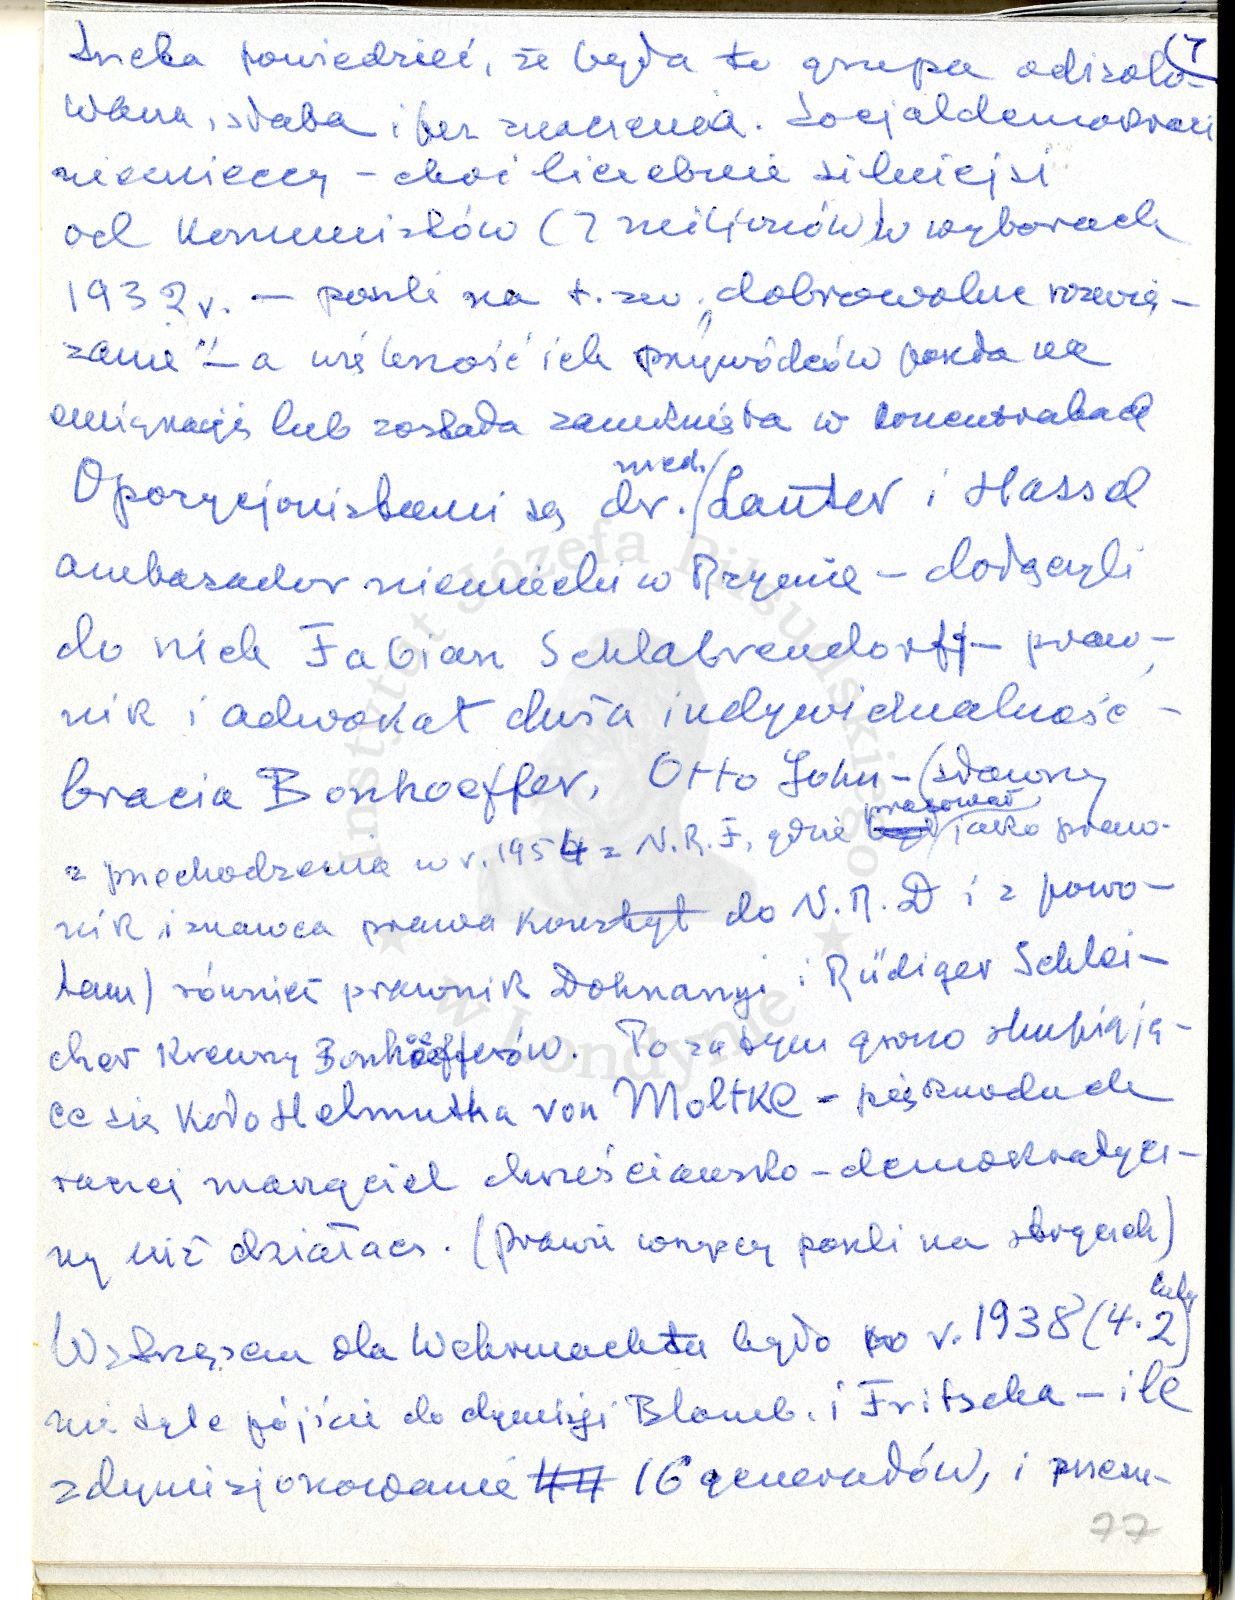 (7
trzeba powiedzieć, że była to grupa odizolo-
wana, słaba i bez znaczenia. Socjaldemokraci
niemieccy – choć liczebnie silniejsi
od komunistów (7 milionów) w wyborach
1932 r. – poszli na t. zw. „dobrowolne rozwią-
zanie" – a większość ich przywódców poszła na
emigrację lub została zamknięta w koncentrakach
Opozycjonistami są dr. med. Lauter i Hassel
ambasador niemiecki w Rzymie – dołączyli
do nich Fabian Schlabrendorff – praw-
nik i adwokat duża indywidualność –
bracia Bonhoeffer, Otto John – (sławny
z przechodzenia w r. 1954 z N.R.F, gdzie pracował jako praw-
nik i znawca prawa do N.R.D i z powro-
tem) również prawnik Dohnanyi i Rüdiger Schlei-
cher krewny Bonhoefferów. Poza tym grono skupiają-
ce się koło Helmutha von Moltke – pięknoduch
raczej marzyciel chrześciańsko-demokratycz-
ny niż działacz. (prawie wszyscy poszli na stryczek)
Wstrząsem dla Wehrmachtu było w r. 1938 (4. 2 luty)
nie tyle pójście do dymisji Blomb. i Fritscha – ile
zdymisjonowanie 16 generałów, i przesu-
77
Instytut Józefa Piłsudskiego
w Londynie